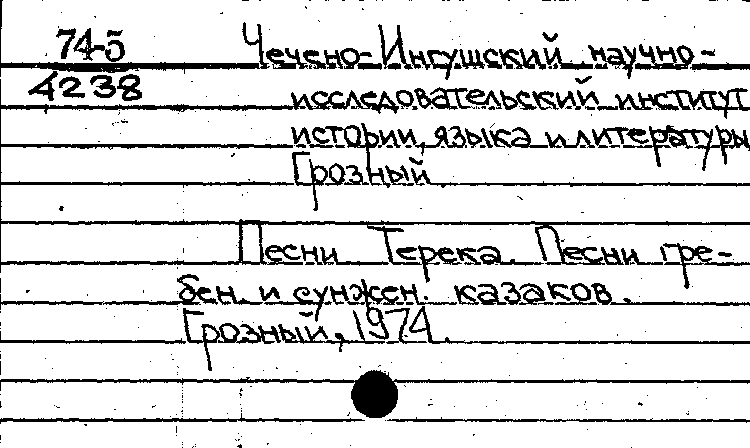 74-5
4238
Чечено-Ингушский научно-
исследовательский институт
истории, языка и литературы
Грозный
Песни Терека. Песни гре-
бен. и сунжен. казаков.
Грозный, 1974.